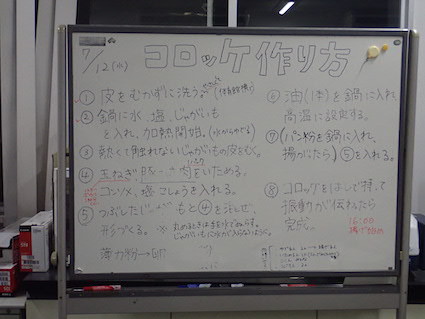 7/12(水)
コロッケ作り方
① 皮をむかずに洗う。
② 鍋に水、塩、じゃがいも
を入れ、加熱開始。(水からゆでる)
③ 熱くて触れないじゃがいもの皮をむく。
④ 玉ねぎ、肉をいためる。
コンソメ、塩こしょうを入れる。
⑤ つぶしたじゃがいもと④を混ぜ、
形づくる。
※ 丸めるときは手を水でぬらす。
じゃがいもに水が入らないように。
薄力粉→
⑥ 油(1本)を鍋に入れ
高温に設定する。
⑦ (パン粉を鍋に入れ、
揚がたら) ⑤を入れる。
⑧ コロッケをはしで持って
振動が伝わたら
完成。
16:00
揚げ開始